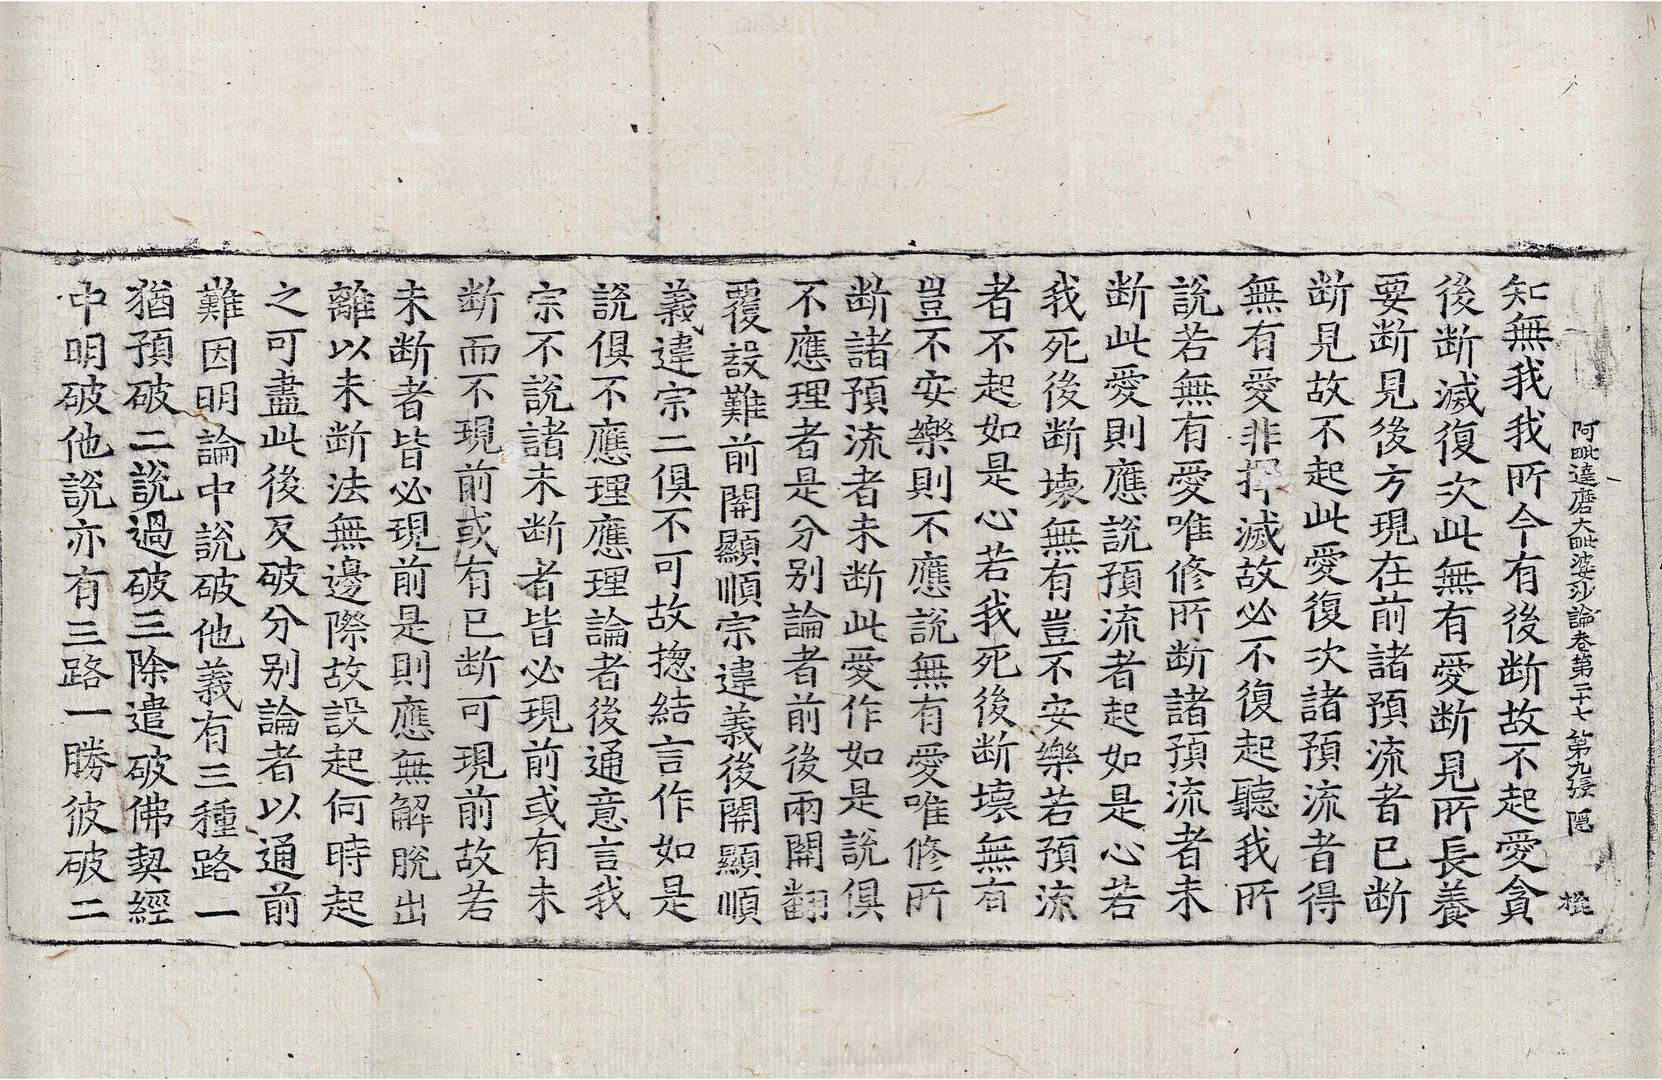 阿毗達磨大毗婆沙論卷第二十七 第九張 隠
知無我我所今有後断故不起愛貪
後断滅復次此無有愛断見所長養
要断見後方現在前諸預流者已断
断見故不起此愛復次諸預流者得
無有愛非擇滅故必不復起聽我所
說若無有愛唯修所断諸預流者未
断此愛則應說預流者起如是心若
我死後断壞無有豈不安樂若預流
者不起如是心若我死後断壞無有
豈不安樂則不應說無有愛唯修所
断諸預流者未断此愛作如是說俱
不應理者是分別論者前後兩開翻
覆設難前開顯順宗違義後開顯順
義違宗二俱不可故揔結言作如是
說俱不應理應理論者後通意言我
宗不說諸未断者皆必現前或有未
断而不現前或有已断可現前故若
未断者皆必現前是則應無解脫出
離以未断法無邊際故設起何時起
之可盡此後反破分別論者以通前
難因明論中說破他義有三種路一
猶預破二說過破三除遣破佛契經
中明破他說亦有三路一勝彼破二